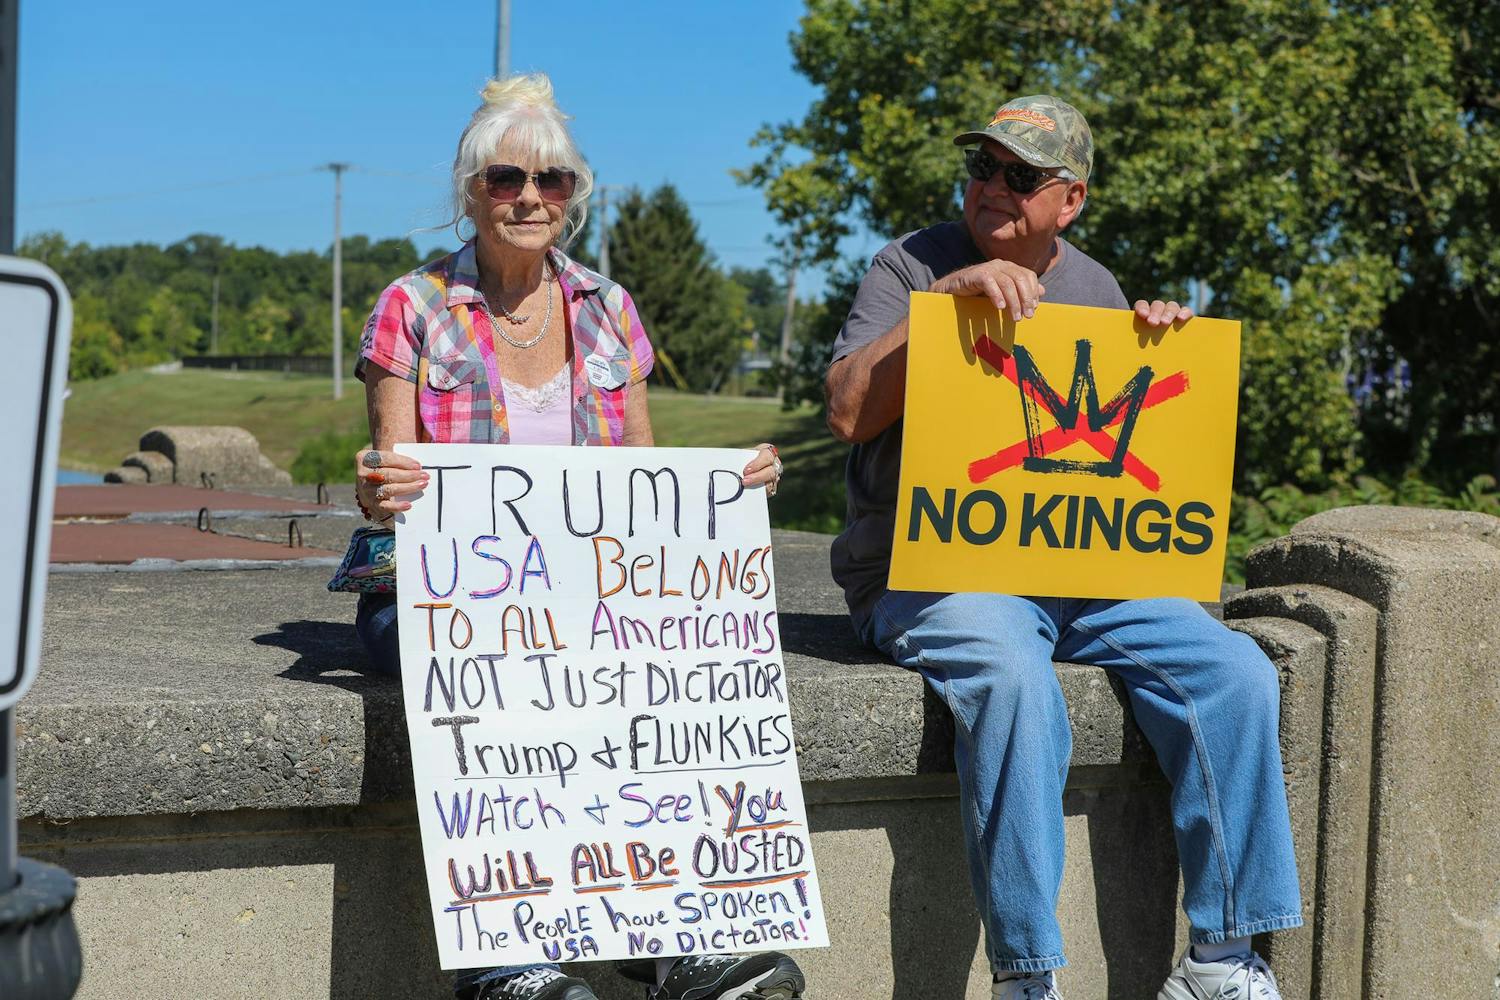 TRUMP
U.S.A. BeLONGS
TO ALL AmericANS
NOT JUSt DicTaTOR
Trump & FLUNKiES
WAtch & See! You
WiLL ALL Be OUSTED
The PeopLE have SPOKen!
USA No DictaTOR!
NO KINGS